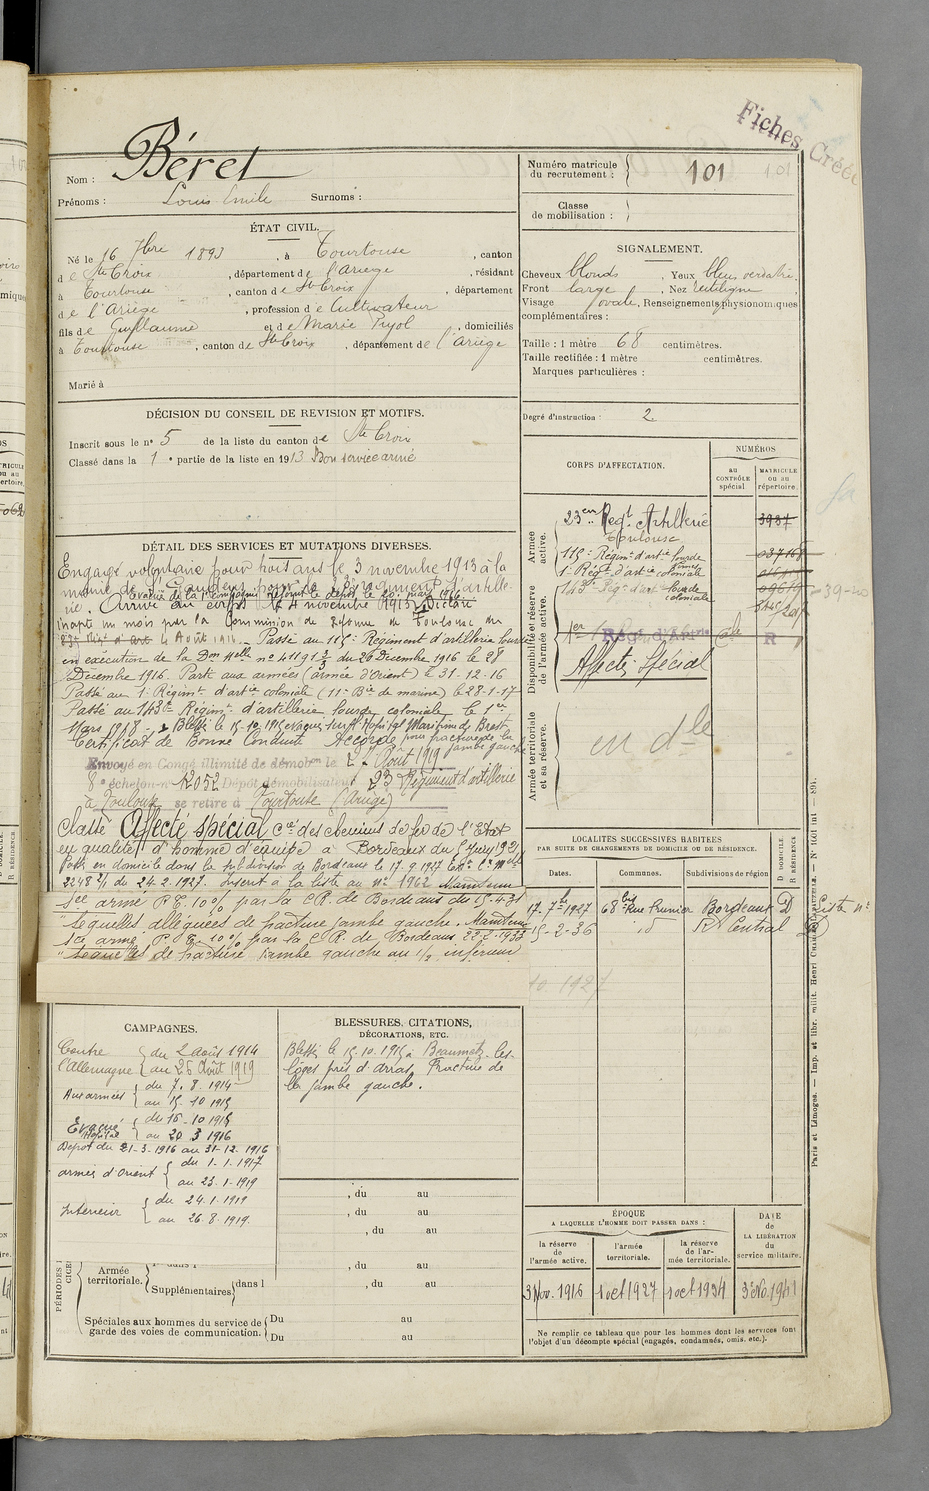 Fiches Créée
Nom : Béret
Prénoms : Louis Emile Surnoms :
Numéro matricule du recrutement : 101
101
Classe de mobilisation :
ÉTAT CIVIL.
Né le 16 7bre 1893, à Tourtouse, canton
de Ste Croix, département de l'Ariège, résidant
à Tourtouse, canton de Ste Croix, département
de l'Ariège, profession de Cultivateur
fils de Guillaume et de Marie Pujol, domiciliés
à Tourtouse, canton de Ste Croix, département de l'Ariège
Marié à
SIGNALEMENT.
Cheveux blonds, Yeux bleus verdatre
Front large, Nez rectiligne
Visage ovale, Renseignements physionomiques
complémentaires :
Taille : 1 mètre 68 centimètres.
Taille rectifiée : 1 mètre centimètres.
Marques particulières :
Degré d'instruction : 2
DÉCISION DU CONSEIL DE REVISION ET MOTIFS.
Inscrit sous le n° 5 de la liste du canton de Ste Croix
Classé dans la 1e partie de la liste en 1913 Bon service armé
DÉTAIL DES SERVICES ET MUTATIONS DIVERSES.
Engagé volontaire pour huit ans le 3 novembre 1913 à la
mairie de St Gaudens pour le 23e régiment d'artille-
Evacué de la 1e compagnie rejoint le dépôt le 20 mars 1916
rie. Arrivé au corps le 4 novembre 1913. Déclaré
inapte un mois par la Commission de Réforme de Toulouse du
4 Août 1916. Passé au 115e Régiment d'artillerie lourde
en exécution de la Don Melle n° 41191 3/3 du 26 Décembre 1916 le 28
Décembre 1916. Parti aux armées (armée d'Orient) le 31-12-16
Passé au 1e Régimt d'artie coloniale (11e Bie de marine) le 28-1-17
Passé au 143e Régimt d'artillerie lourde coloniale le 1er
Mars 1918. Blessé le 15-10-1915 évacué sur Hôpital Maritime de Brest
pour fracture de la jambe gauche
Certificat de Bonne Conduite Accordé
Envoyé en Congé illimité de démobon le 27 Août 1919
8e échelon n° 12052 Dépôt démobilisateur 23 Régiment d'artillerie
à Toulouse se retire à Tourtouse (Ariège)
Classé Affecté Spécial Cie des chemins de fer de l'Etat
en qualité d'homme d'équipe à Bordeaux du 5 Juin 1921
Passé en domicile dans la subdivision de Bordeaux le 17.9.1927
2248 2/1 du 24-2-1927. Inscrit à la liste au n° 1962 Maintenu
Sce armé P.I. 10% par la C.R. de Bordeaux du 15-4-31
"Séquelles alléguées de fracture jambe gauche. Maintenu
Sce armé P. I. 10% par la C.R. de Bordeaux 22-2-1933
"Séquelles de fracture jambe gauche au 1/3 inférieur
CORPS D'AFFECTATION.
NUMÉROS
au CONTRÔLE spécial
MATRICULE ou au répertoire.
Armée active.
23eme Regt Artillerie 3937
Toulouse
115e Régimt d'artie lourde
1e Régt d'artie coloniale
Disponibilité et réserve de l'armée active.
143e Régt d'art lourde
coloniale
1er Régt d'Artie Cole R
Affecté Spécial
Armée territoriale et sa réserve.
en dle
LOCALITÉS SUCCESSIVES HABITÉES
PAR SUITE DE CHANGEMENTS DE DOMICILE OU DE RÉSIDENCE.
Dates. Communes. Subdivisions de région D DOMICILE R RÉSIDENCE
17-7bre 1927 68 bis Rue Prunier Bordeaux D
15-2-36 id R. Central
Liste n°
CAMPAGNES.
Contre l'Allemagne du 2 août 1914
au 26 Août 1919
Aux armées du 7.8.1914
au 15-10 1915
Evacué Hôpital du 16-10 1915
au 20 3 1916
Dépôt du 21-3-1916 au 31-12-1916
armée d'Orient du 1-1-1917
au 23.1.1919
Intérieur du 24.1.1919
au 26.8.1919.
BLESSURES, CITATIONS,
DÉCORATIONS, ETC.
Blessé le 15.10.1915 à Beaumetz-les-
loges près d'Arras. Fracture de
la jambe gauche.
, du au
, du au
, du au
, du au
, du au
Armée territoriale.
Supplémentaires dans l
Spéciales aux hommes du service de garde des voies de communication.
Du au
Du au
ÉPOQUE
A LAQUELLE L'HOMME DOIT PASSER DANS :
DATE de LA LIBÉRATION du service militaire.
la réserve de l'armée active.
l'armée territoriale.
la réserve de l'armée territoriale.
3 Nov. 1916 1 oct 1927 1 oct 1934 3 No. 1941
Ne remplir ce tableau que pour les hommes dont les services font
l'objet d'un décompte spécial (engagés, condamnés, omis, etc.).